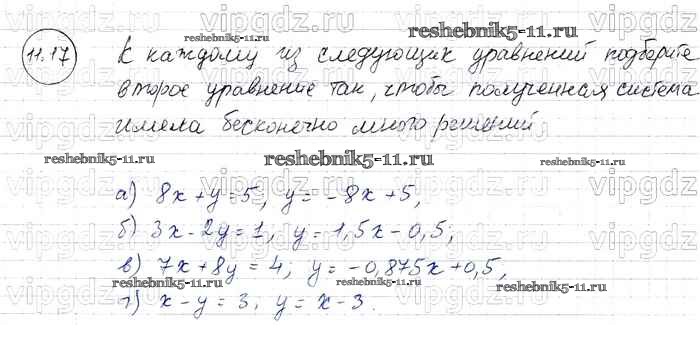 11.17
К каждому из следующих уравнений подберите
второе уравнение так, чтобы полученная система
имела бесконечно много решений
а) 8x + y = 5, y = -8x + 5,
б) 3x - 2y = 1, y = 1,5x - 0,5;
в) 7x + 8y = 4; y = -0,875x + 0,5,
г) x - y = 3, y = x - 3.
reshebnik5-11.ru
reshebnik5-11.ru
reshebnik5-11.ru
reshebnik5-11.ru
reshebnik5-11.ru
reshebnik5-11.ru
reshebnik5-11.ru
reshebnik5-11.ru
vipgdz.ru